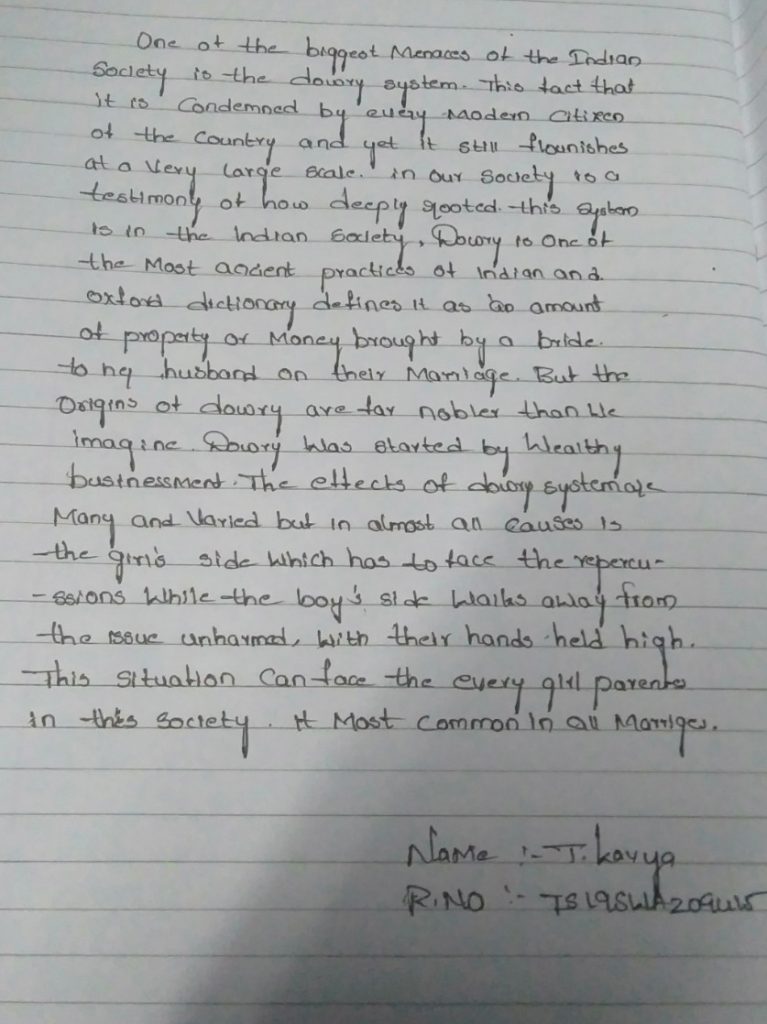 One of the biggest Menaces of the Indian
Society is the dowry system. This fact that
it is Condemned by every Modern Citizen
of the Country and yet it still flourishes
at a Very Large scale. in our Society is a
testimony of how deeply rooted. this system
is in the Indian Society, Dowry is One of
the Most ancient practices of Indian and
oxford dictionary defines it as an amount
of property or Money brought by a bride.
to her husband on their Marriage. But the
Origins of dowry are far nobler than We
imagine. Dowry Was started by Wealthy
businessment. The effects of dowry system are
Many and Varied but in almost all Causes is
the girl's side which has to face the repercu-
-ssions While the boy's side Walks away from
the issue unharmed, With their hands held high.
This Situation Can face the every girl parents
in this Society. It Most Common in all Marriges.
Name :- T. kavya
R.NO :-